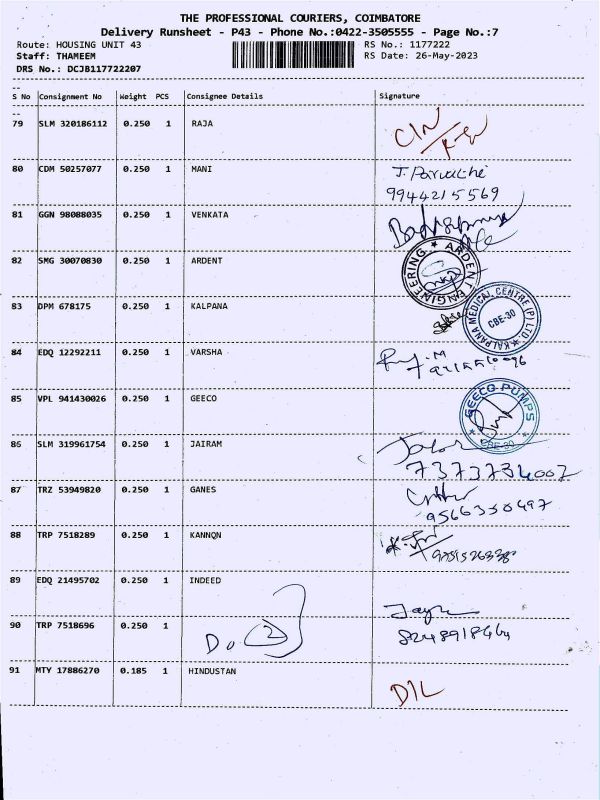 THE PROFESSIONAL COURIERS, COIMBATORE
Delivery Runsheet - P43 - Phone No.:0422-3505555 - Page No.:7
Route: HOUSING UNIT 43 RS No.: 1177222
Staff: THAMEEM RS Date: 26-May-2023
DRS No.: DCJB117722207
S No Consignment No Weight PCS Consignee Details Signature
79 SLM 320186112 0.250 1 RAJA
80 CDM 50257077 0.250 1 MANI J. Parvathi
9944215569
81 GGN 98088035 0.250 1 VENKATA
82 SMG 30070830 0.250 1 ARDENT ARDENT ENGINEERING
83 DPM 678175 0.250 1 KALPANA KALPANA MEDICAL CENTRE (P) LTD CBE-30
84 EDQ 12292211 0.250 1 VARSHA
85 VPL 941430026 0.250 1 GEECO GEECO PUMPS CBE-30
86 SLM 319961754 0.250 1 JAIRAM
7373734007
87 TRZ 53949820 0.250 1 GANES
9566350497
88 TRP 7518289 0.250 1 KANNQN
89 EDQ 21495702 0.250 1 INDEED
90 TRP 7518696 0.250 1 Do (2)
91 MTY 17886270 0.185 1 HINDUSTAN D/L